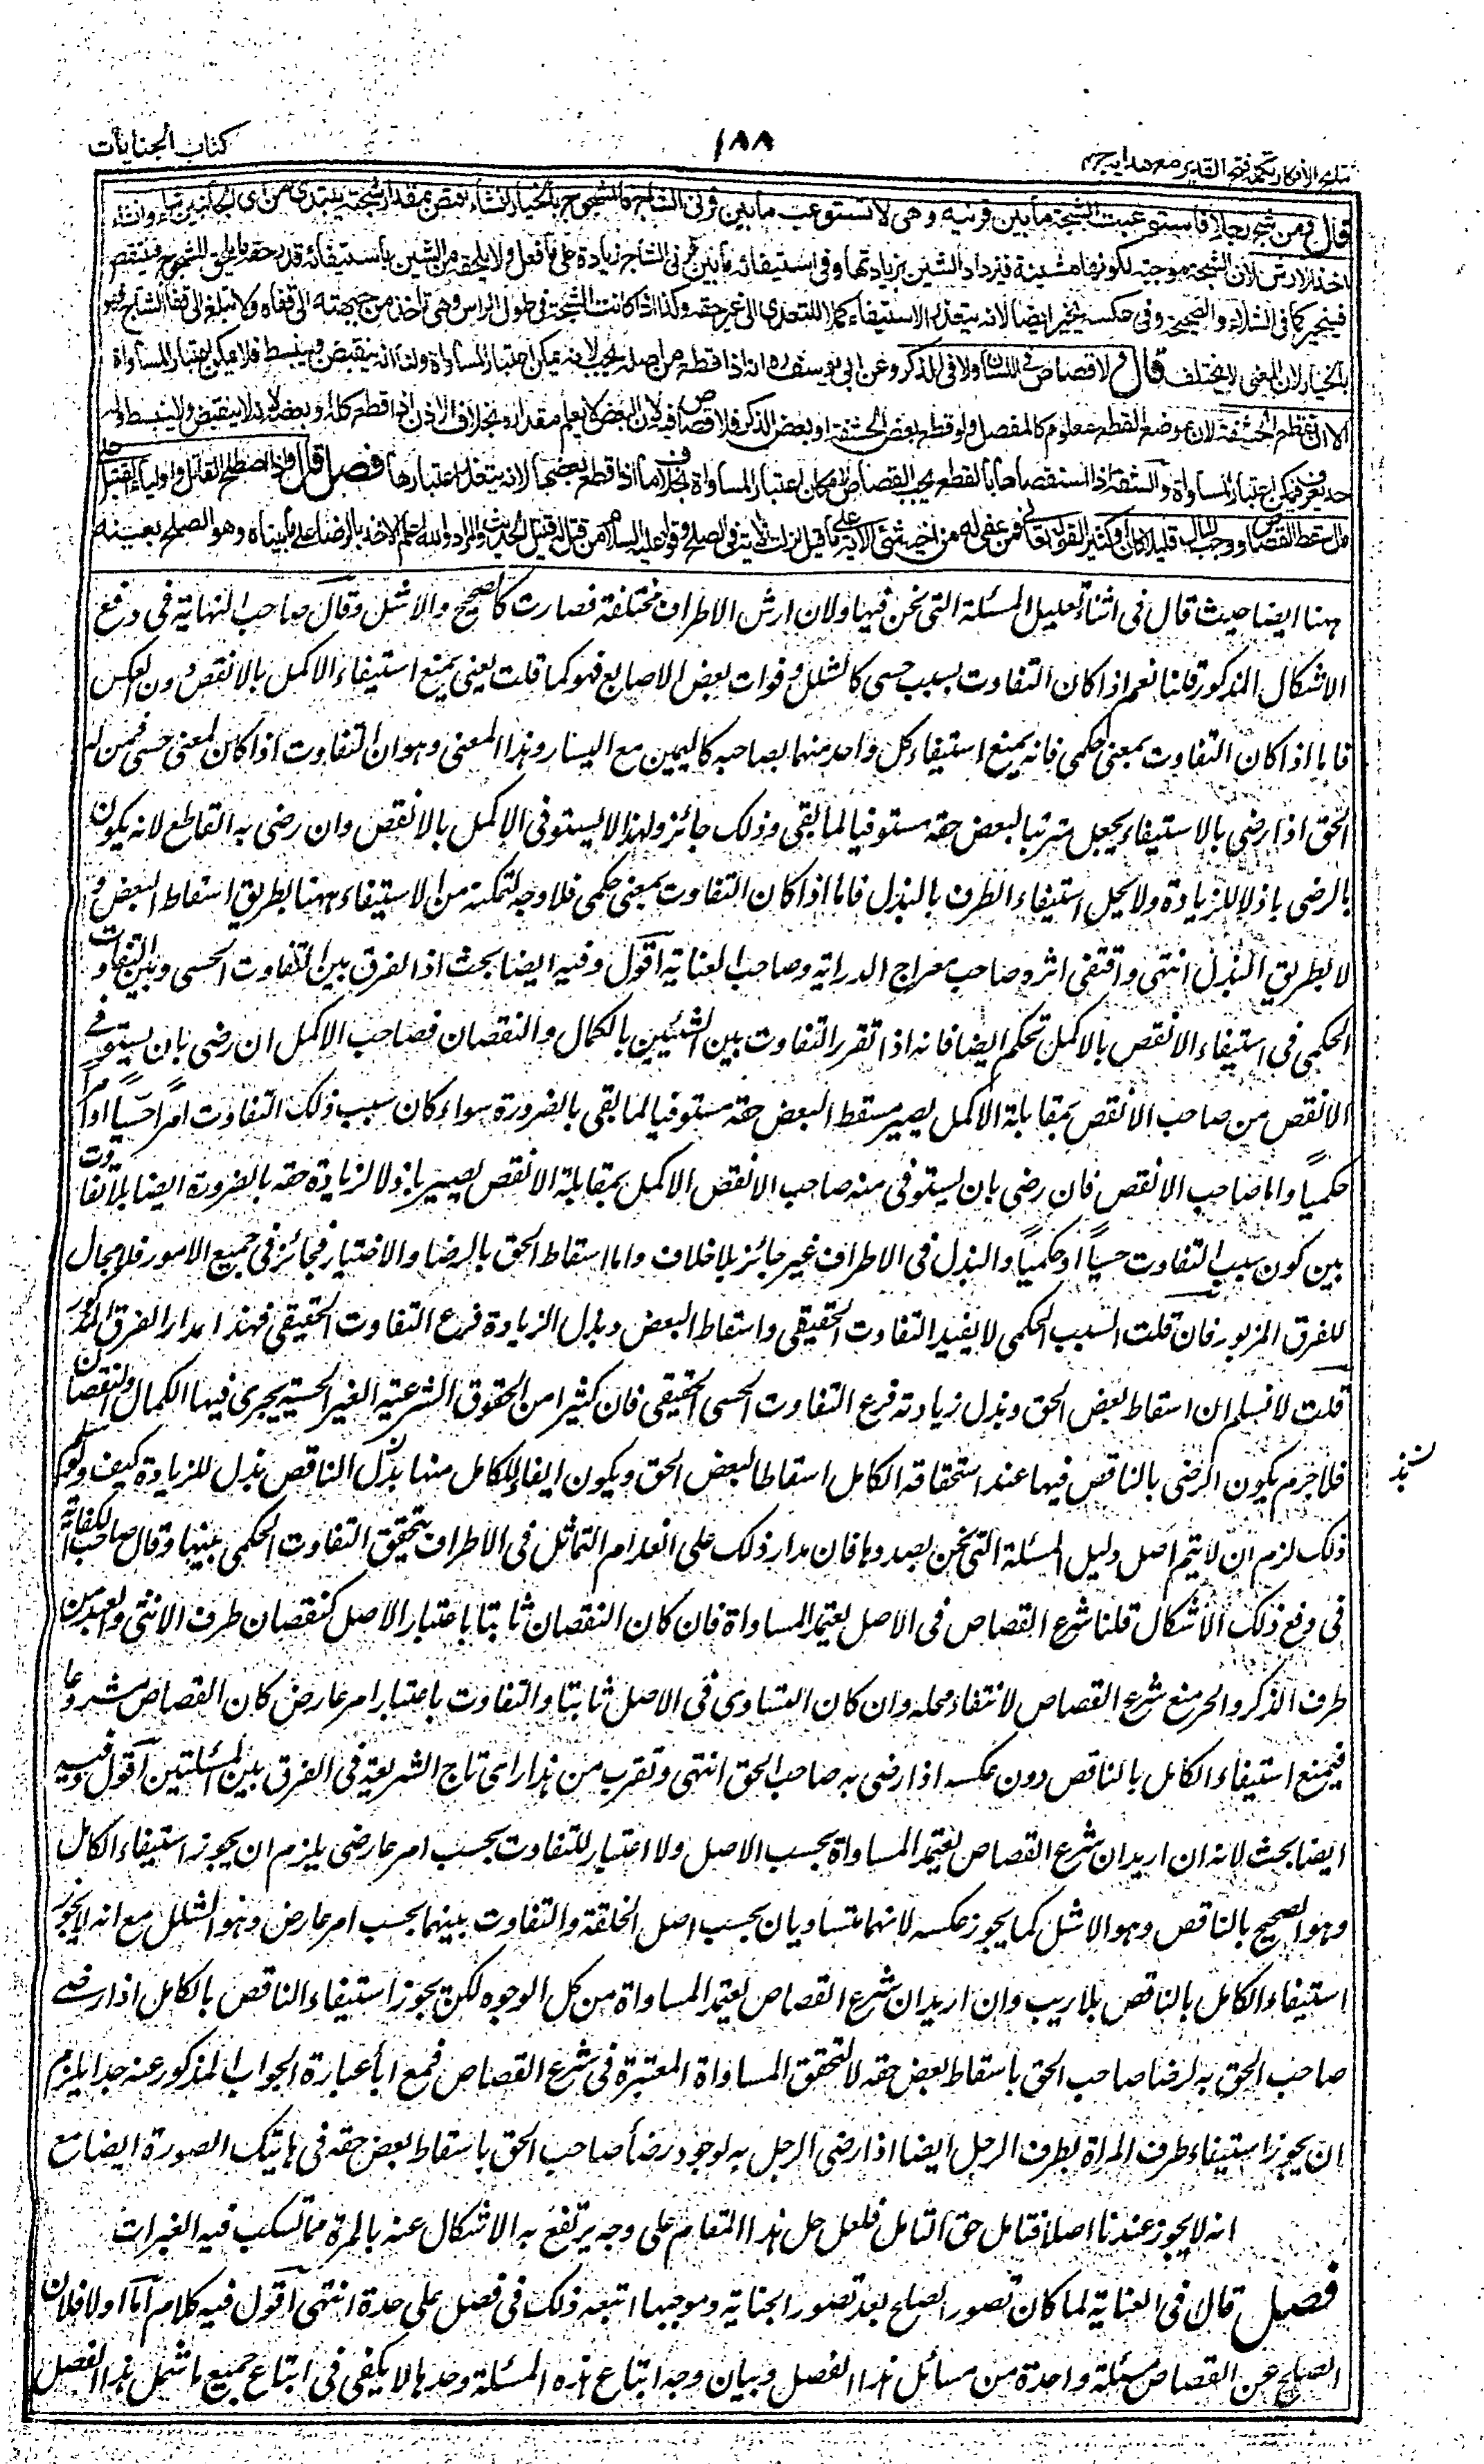 كتاب الجنايات
١٨٨
نتائج الافكار تكملة فتح القدير مع هدايه ج
قال ومن شج رجلا فاستوعبت الشجة ما بين قرنيه وهى لا تستوعب ما بين قرنى الشاج فالمشجوج بالخيار ان شاء اقتص بمقدار شجته يبتدئ من اى الجانبين شاء وان شاء
اخذ الارش لان الشجة موجبة لكونها مشينة فيزداد الشين بزيادتها وفى استيفائه ما بين قرنى الشاج زيادة على ما فعل ولا يلحقه من الشين باستيفائه قدر حقه ما يلحق المشجوج فينتقص
فيخير كما فى الشلاء والصحيحة وفى عكسه يخير ايضا لانه يتعذر الاستيفاء كملا للتعدى الى غير حقه وكذا اذا كانت الشجة فى طول الراس وهى تأخذ من جبهته الى قفاه ولا تبلغ الى قفا الشاج فهو
بالخيار لان المعنى لا يختلف قال ولا قصاص فى اللسان ولا فى الذكر وعن ابى يوسف ره انه اذا قطع من اصله يجب لانه يمكن اعتبار المساواة ولنا انه ينقبض وينبسط فلا يمكن اعتبار المساواة
الا ان تقطع الحشفة لان موضع القطع معلوم كالمفصل ولو قطع بعض الحشفة او بعض الذكر فلا قصاص فيه لان البعض لا يعلم مقداره بخلاف الاذن اذا قطع كله او بعضه لانه لا ينقبض ولا ينبسط وله
حد يعرف فيمكن اعتبار المساواة والشفة اذا استقصاها بالقطع يجب القصاص لامكان اعتبار المساواة بخلاف ما اذا قطع بعضها لانه يتعذر اعتبارها فصل قال واذا اصطلح القاتل واولياء القتيل على
مال سقط القصاص ووجب المال قليلا كان او كثيرا لقوله تعالى فمن عفى له من اخيه شئ الاية على ما قيل نزلت الاية فى الصلح وقوله عليه السلام من قتل له قتيل الحديث والمراد والله اعلم الاخذ بالرضا على ما بيناه وهو الصلح بعينه
ہهنا ايضا حيث قال فى اثناء تعليل المسئلة التى نحن فيها ولان ارش الاطراف مختلفة فصارت كالصحيح والاشل وقال صاحب النهاية فى دفع
الاشكال المذكور قلنا نعم اذا كان التفاوت بسبب حسى كالشلل وفوات بعض الاصابع فهو كما قلت يعنى يمنع استيفاء الاكمل بالانقص دون العكس
فاما اذا كان التفاوت بمعنى حكمى فانه يمنع استيفاء كل واحد منهما بصاحبه كاليمين مع اليسار وهذا المعنى وهو ان التفاوت اذا كان لمعنى حسى فمن له
الحق اذا رضى بالاستيفاء يجعل متبرئا لبعض حقه مستوفيا لما بقى وذلك جائز ولهذا لا يستوفى الاكمل بالانقص وان رضى به القاطع لانه يكون
بالرضى باذلا للزيادة ولا يحل استيفاء الطرف بالبذل فاما اذا كان التفاوت بمعنى حكمى فلا وجه لتمكنه من الاستيفاء ههنا بطريق اسقاط البعض و
لا بطريق البذل انتهى واقتفى اثره صاحب معراج الدراية وصاحب العناية اقول وفيه ايضا بحث اذ الفرق بين التفاوت الحسى وبين التفاوت
الحكمى فى استيفاء الانقص بالاكمل تحكم ايضا فانه اذا تقرر التفاوت بين الشيئين بالكمال والنقصان فصاحب الاكمل ان رضى بان يستوفى
الانقص من صاحب الانقص بمقابلة الاكمل يصير مسقط البعض حقه مستوفيا لما بقى بالضرورة سواء كان سبب ذلك التفاوت امرًا حسيًا او امرًا
حكميًا واما صاحب الانقص فان رضى بان يستوفى منه صاحب الانقص الاكمل بمقابلة الانقص يصير باذلا لزيادة حقه بالضرورة ايضا بلا تفاوت
بين كون سبب التفاوت حسيًا او حكميًا والبذل فى الاطراف غير جائز بلا خلاف واما اسقاط الحق بالرضا والاختيار فجائز فى جميع الامور فلا مجال
للفرق المزبور فان قلت السبب الحكمى لا يفيد التفاوت الحقيقى واسقاط البعض وبذل الزيادة فرع التفاوت الحقيقى فهذا مدار الفرق المذكور
قلت لا نسلم ان اسقاط بعض الحق وبذل زيادته فرع التفاوت الحسى الحقيقى فان كثيرا من الحقوق الشرعية الغير الحسية يجرى فيها الكمال والنقصان
فلا جرم يكون الرضى بالناقص فيها عند استحقاقه الكامل اسقاطا لبعض الحق ويكون ايفاء الكامل منها بذل الناقص بذل للزيادة كيف ولو سلم
ذلك لزم ان لا يتم اصل دليل المسئلة التى نحن بصددها فان مدار ذلك على انعدام التماثل فى الاطراف بتحقق التفاوت الحكمى بينها وقال صاحب الكفاية
فى دفع ذلك الاشكال قلنا شرع القصاص فى الاصل يعتمد المساواة فان كان النقصان ثابتا باعتبار الاصل كنقصان طرف الانثى والعبد من
طرف الذكر والحر منع شرع القصاص لانتفاء محله وان كان التساوى فى الاصل ثابتا والتفاوت باعتبار امر عارض كان القصاص مشروعا
فيمنع استيفاء الكامل بالناقص دون عكسه اذا رضى به صاحب الحق انتهى وتقرب من هذا راى تاج الشريعة فى الفرق بين المسئلتين اقول وفيه
ايضا بحث لانه ان اريد ان شرع القصاص يعتمد المساواة بحسب الاصل ولا اعتبار للتفاوت بحسب امر عارضى يلزم ان يجوز استيفاء الكامل
وهو الصحيح بالناقص وهو الاشل كما يجوز عكسه لانهما متساويان بحسب اصل الخلقة والتفاوت بينهما بحسب امر عارض وهو الشلل مع انه لا يجوز
استيفاء الكامل بالناقص بلا ريب وان اريد ان شرع القصاص يعتمد المساواة من كل الوجوه لكن يجوز استيفاء الناقص بالكامل اذا رضے
صاحب الحق به لرضا صاحب الحق باسقاط بعض حقه لا لتحقق المساواة المعتبرة فى شرع القصاص فمع اباء عبارة الجواب المذكور عنه جدا يلزم
ان يجوز استيفاء طرف المراة بطرف الرجل ايضا اذا رضى الرجل به لوجود رضا صاحب الحق باسقاط بعض حقه فى هاتيك الصورة ايضا مع
انه لا يجوز عندنا اصلا فتامل حق التامل فلعل حل هذا المقام على وجه يرتفع به الاشكال عنه بالمرة مما تسكب فيه العبرات
فصل قال فى العناية لما كان تصور الصلح بعد تصور الجناية وموجبها اتبعه ذلك فى فصل على حدة انتهى اقول فيه كلام اما اولا فلان
الصلح عن القصاص مسئلة واحدة من مسائل هذا الفصل وبيان وجه اتباع هذه المسئلة وحدها لا يكفى فى اتباع جميع ما شمل هذا الفصل